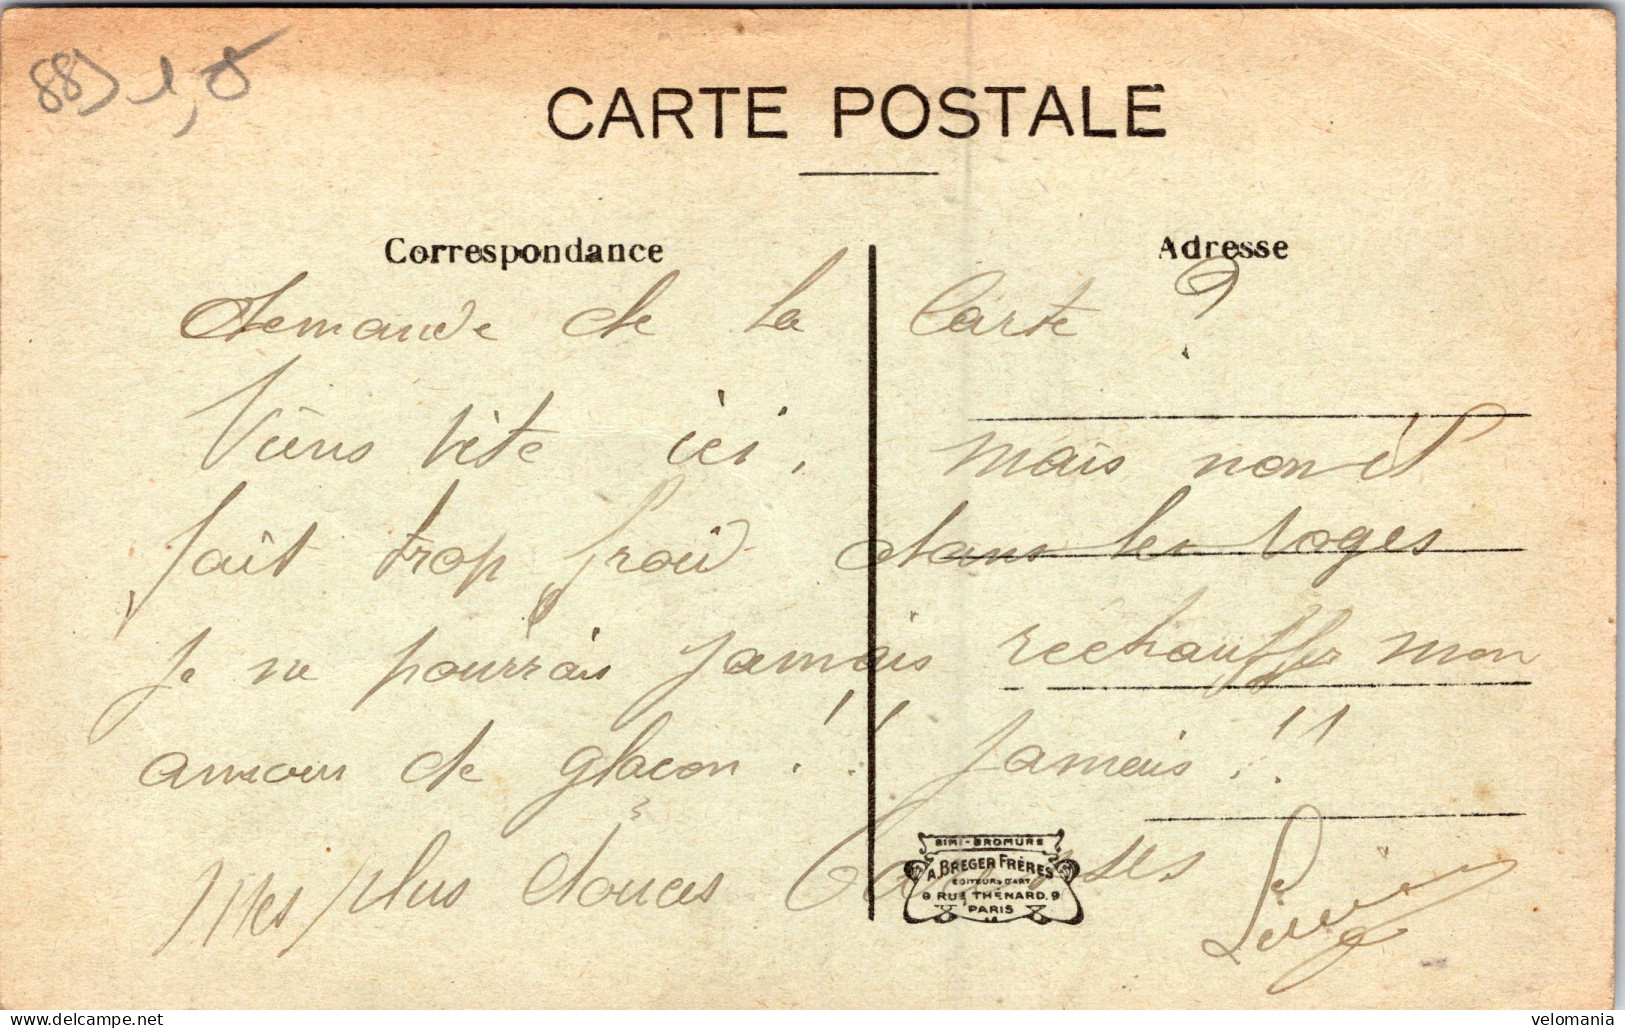 88) 1,5
CARTE POSTALE
Correspondance
Adresse
demande de la Carte ?
Viens vite ici, mais non il
fait trop froid dans les Voges
je ne pourrais jamais rechauffer mon
amour de glacon !! jamais !!
Mes plus douces
SIMI-BROMURE
A. BREGER FRÈRES
EDITEURS D'ART
9 RUE THÉNARD, 9
PARIS
velomania | delcampe.net